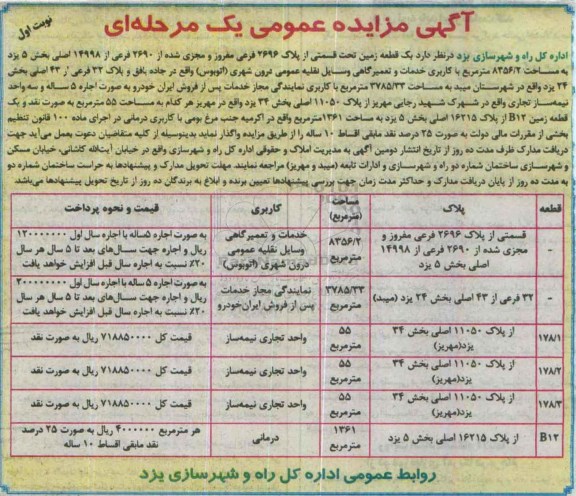 آگهی مزایده عمومی یک مرحله‌ای
نوبت اول
اداره کل راه و شهرسازی یزد درنظر دارد یک قطعه زمین تحت قسمتی از پلاک ۲۶۹۶ فرعی مفروز و مجزی شده از ۲۶۹۰ فرعی از ۱۴۹۹۸ اصلی بخش ۵ یزد
به مساحت ۸۳۵۶/۲ مترمربع با کاربری خدمات و تعمیرگاهی وسایل نقلیه عمومی درون شهری (اتوبوس) واقع در جاده بافق و پلاک ۳۲ فرعی از ۴۳ اصلی بخش
۲۴ یزد واقع در شهرستان میبد به مساحت ۳۷۸۵/۳۳ مترمربع با کاربری نمایندگی مجاز خدمات پس از فروش ایران خودرو به صورت اجاره ۵ ساله و سه واحد
نیمه‌ساز تجاری واقع در شهرک شهید رجایی مهریز از پلاک ۱۱۰۵۰ اصلی بخش ۳۴ یزد واقع در مهریز هر کدام به مساحت ۵۵ مترمربع به صورت نقد و یک
قطعه زمین B۱۲ از پلاک ۱۶۲۱۵ اصلی بخش ۵ یزد به مساحت ۱۳۶۱مترمربع واقع در اکرمیه جنب مرغ بومی با کاربری درمانی در اجرای ماده ۱۰۰ قانون تنظیم
بخشی از مقررات مالی دولت به صورت ۲۵ درصد نقد مابقی اقساط ۱۰ ساله را از طریق مزایده واگذار نماید بدینوسیله از کلیه متقاضیان دعوت بعمل می‌آید جهت
دریافت مدارک ظرف مدت ده روز از تاریخ انتشار دومین آگهی به مدیریت املاک و حقوقی اداره کل راه و شهرسازی واقع در خیابان آیت‌الله کاشانی، خیابان مسکن
و شهرسازی ساختمان شماره دو راه و شهرسازی و ادارات تابعه (میبد و مهریز) مراجعه نمایند. مهلت تحویل مدارک و پیشنهادها به حراست ساختمان شماره دو
به مدت ده روز از پایان دریافت مدارک و حداکثر مدت زمان جهت بررسی پیشنهادها تعیین برنده و ابلاغ به برندگان ده روز از تاریخ تحویل پیشنهادها می‌باشد.
قطعه پلاک مساحت (مترمربع) کاربری قیمت و نحوه پرداخت
- قسمتی از پلاک ۲۶۹۶ فرعی مفروز و مجزی شده از ۲۶۹۰ فرعی از ۱۴۹۹۸ اصلی بخش ۵ یزد ۸۳۵۶/۲ مترمربع خدمات و تعمیرگاهی وسایل نقلیه عمومی درون شهری (اتوبوس) به صورت اجاره ۵ساله با اجاره سال اول ۱۲۰۰۰۰۰۰۰ ریال و اجاره جهت سال‌های بعد تا ۵ سال هر سال ۲۰٪ نسبت به اجاره سال قبل افزایش خواهد یافت
- ۳۲ فرعی از ۴۳ اصلی بخش ۲۴ یزد (میبد) ۳۷۸۵/۳۳ مترمربع نمایندگی مجاز خدمات پس از فروش ایران‌خودرو به صورت اجاره ۵ ساله با اجاره سال اول ۲۰۰۰۰۰۰۰۰ ریال و اجاره جهت سال‌های بعد تا ۵ سال هر سال ۲۰٪ نسبت به اجاره سال قبل افزایش خواهد یافت
۱۷۸/۱ از پلاک ۱۱۰۵۰ اصلی بخش ۳۴ یزد(مهریز) ۵۵ مترمربع واحد تجاری نیمه‌ساز قیمت کل ۷۱۸۸۵۰۰۰۰ ریال به صورت نقد
۱۷۸/۲ از پلاک ۱۱۰۵۰ اصلی بخش ۳۴ یزد(مهریز) ۵۵ مترمربع واحد تجاری نیمه‌ساز قیمت کل ۷۱۸۸۵۰۰۰۰ ریال به صورت نقد
۱۷۸/۳ از پلاک ۱۱۰۵۰ اصلی بخش ۳۴ یزد(مهریز) ۵۵ مترمربع واحد تجاری نیمه‌ساز قیمت کل ۷۱۸۸۵۰۰۰۰ ریال به صورت نقد
B۱۲ از پلاک ۱۶۲۱۵ اصلی بخش ۵ یزد ۱۳۶۱ مترمربع درمانی هر مترمربع ۴۰۰۰۰۰۰ ریال به صورت ۲۵ درصد نقد مابقی اقساط ۱۰ ساله
روابط عمومی اداره کل راه و شهرسازی یزد